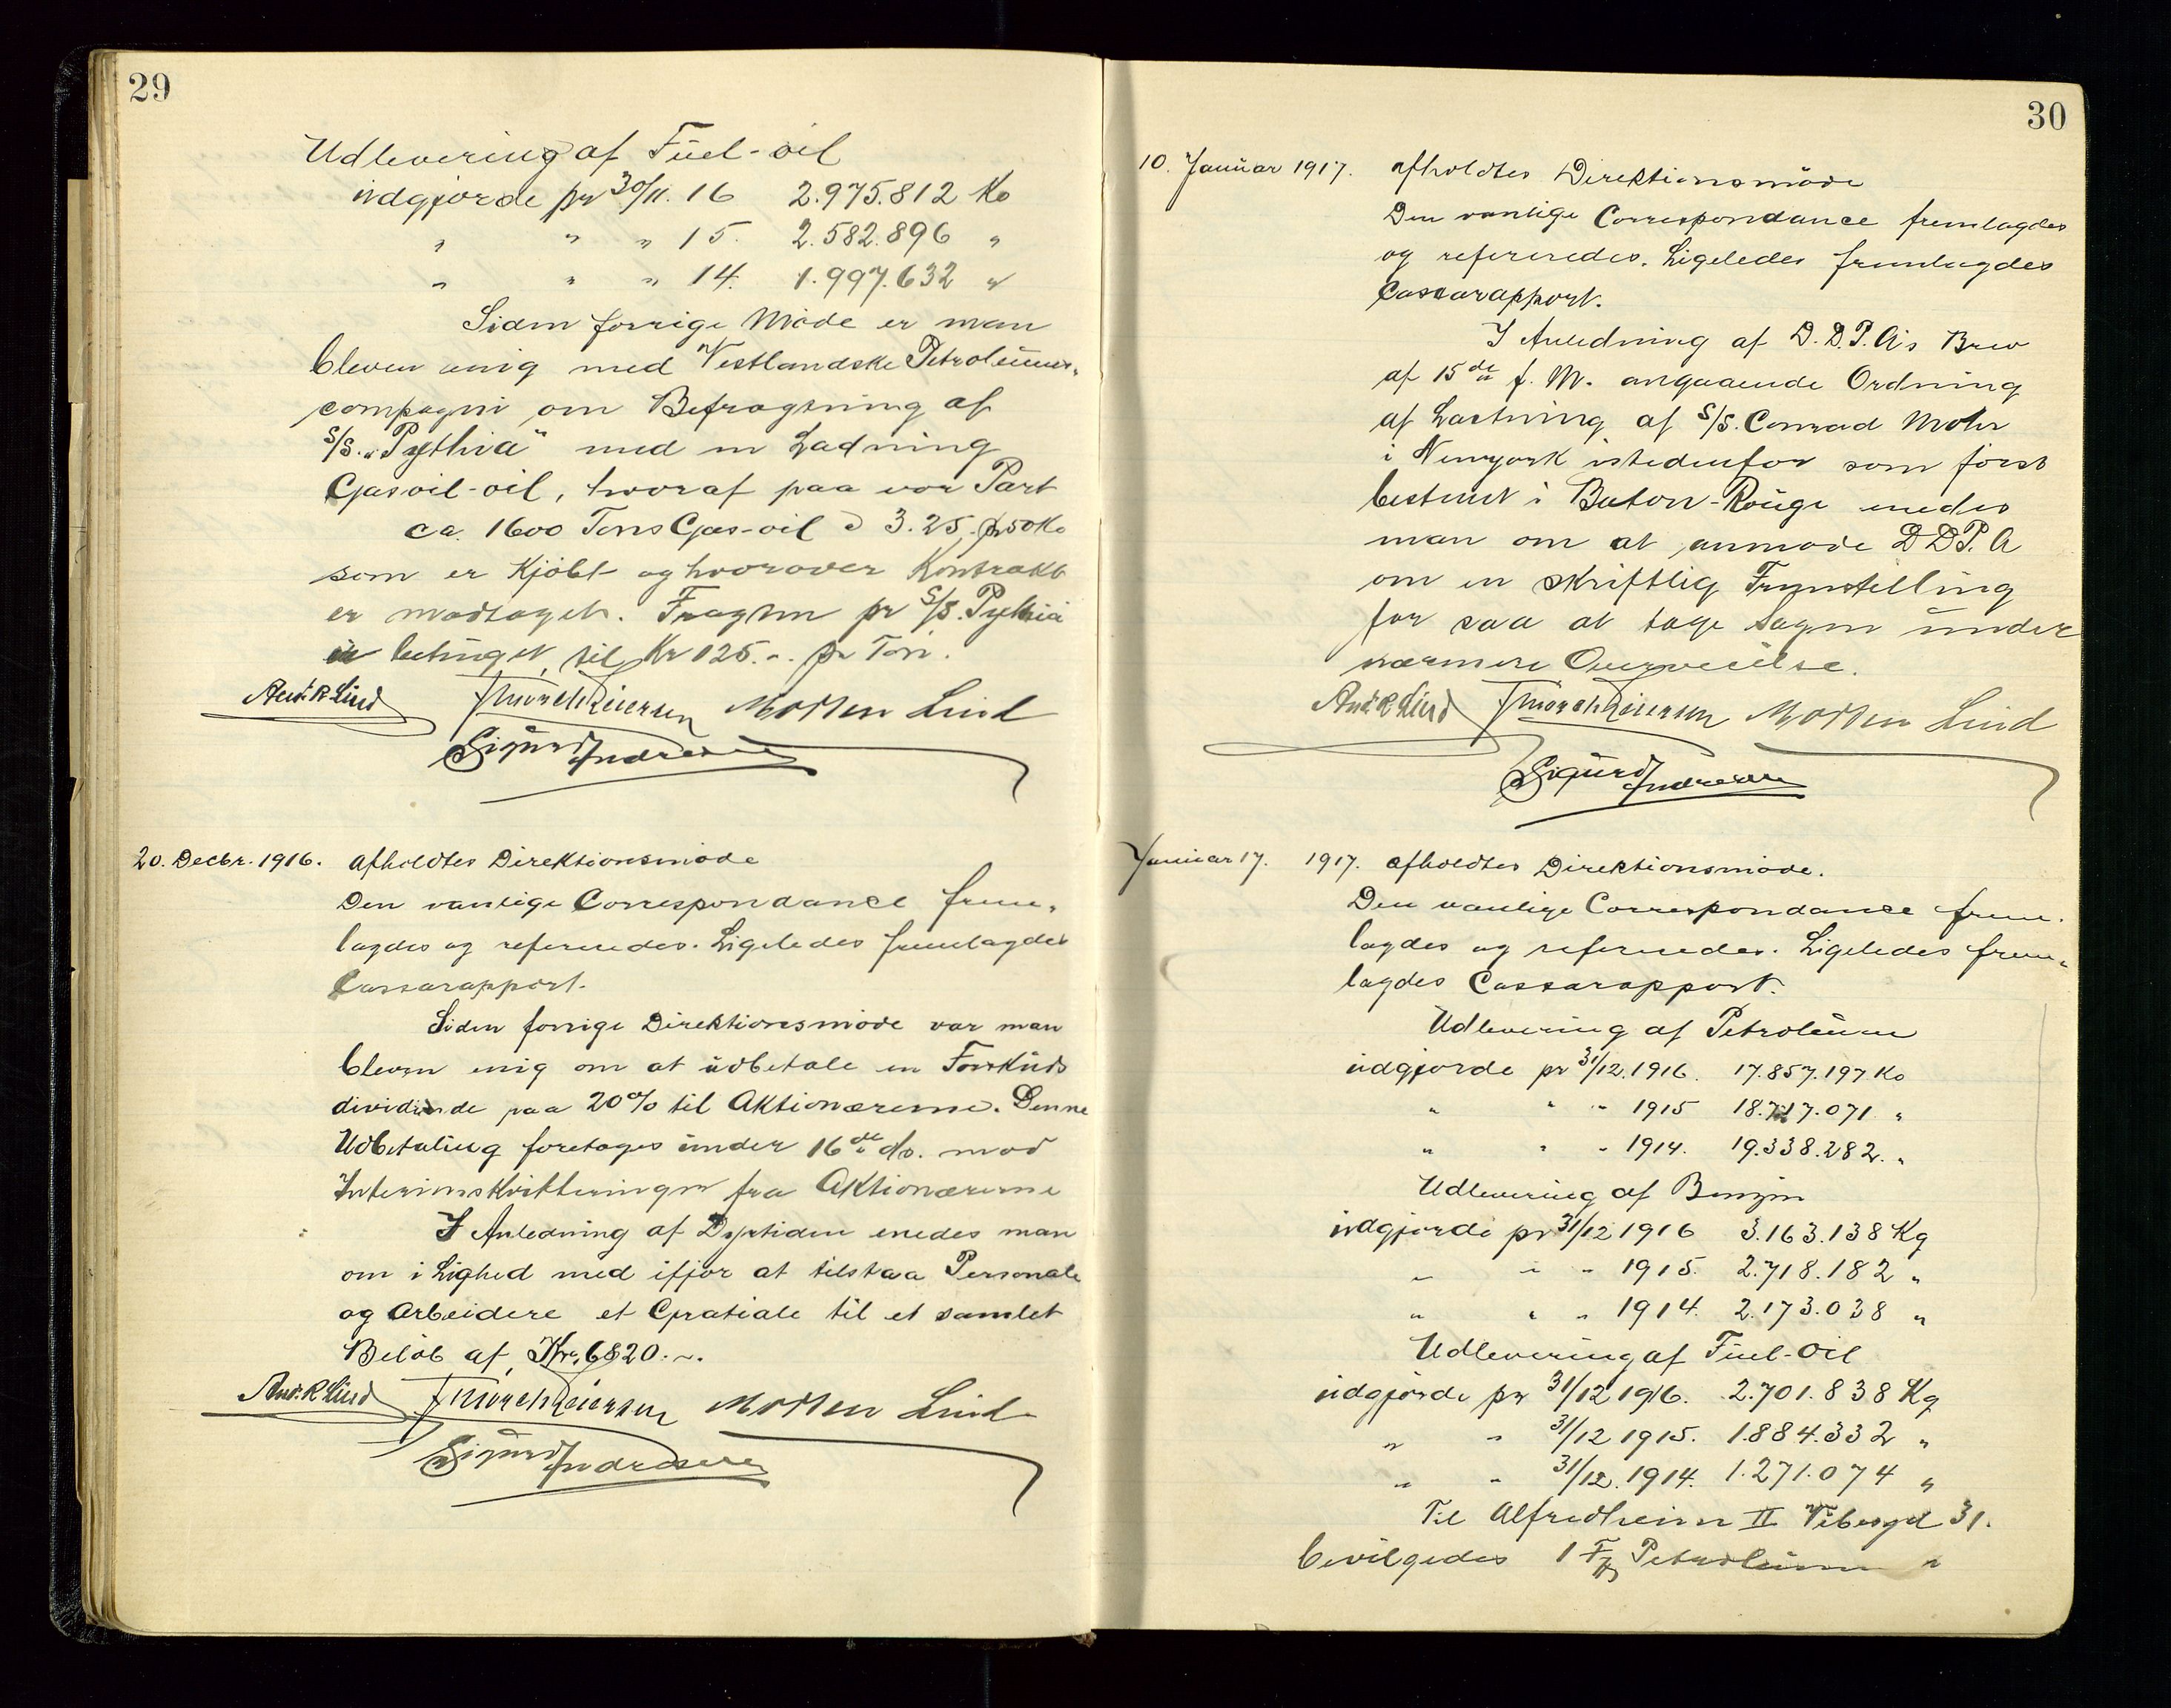 29
Udlevering af Fuel-oil
udgjorde pr 30/11. 16 2.975.812 Ko
" " " 15. 2.582.896 "
" " " 14. 1.997.632 "
Siden forrige Møde er man
bleven enig med Vestlandske Petroleums-
compagni om Befragtning af
S/S. "Pythia" med en Ladning
Gasoil-oil, hvoraf paa vor Part
ca. 1600 Tons Gas-oil à 3.25 pr 50 Ko
som er Kjøbt og hvorover Kontrakt
er modtaget. Fragten pr S/S. Pythia
er betinget til Kr 125.- pr Ton.
And. R Lind Mørch Reiersen Morten Lind
Sigurd Andresen
20. Decbr. 1916. afholdtes Direktionsmøde
Den vanlige Correspondance frem-
lagdes og refereredes. Ligeledes fremlagdes
Cassarapport.
Siden forrige Direktionsmøde var man
bleven enig om at udbetale en Forskuds
dividende paa 20% til Aktionærerne. Denne
Udbetaling foretages under 16de ds. mod
Interimskvitteringer fra Aktionærerne
I Anledning af Dyrtiden enedes man
om i Lighed med ifjor at tilstaa Personale
og Arbeidere et Gratiale til et samlet
Beløb af Kr. 6820.-.
And. R Lind Mørch Reiersen Morten Lind
Sigurd Andresen
30
10. Januar 1917. afholdtes Direktionsmøde
Den vanlige Correspondance fremlagdes
og refereredes. Ligeledes fremlagdes
Cassarapport.
I Anledning af D.D.P.A's Brev
af 15de f. M. angaaende Ordning
af Lastning af S/S. Conrad Mohr
i Newyork istedenfor som først
bestemt i Baton-Rouge enedes
man om at anmode DDP.A
om en skriftlig Fremstilling
for saa at tage Sagen under
nærmere Overveielse.
And. R Lind Mørch Reiersen Morten Lind
Sigurd Andresen
Januar 17. 1917. afholdtes Direktionsmøde.
Den vanlige Correspondance frem-
lagdes og refereredes. Ligeledes frem-
lagdes Cassarapport.
Udlevering af Petroleum
udgjorde pr 31/12.1916. 17.857.197 Ko
" " " 1915 18.717.071 "
" " " 1914. 19.338.282. "
Udlevering af Benzin
udgjorde pr 31/12 1916 3.163.138 Kg
" " " 1915. 2.718.182 "
" " " 1914. 2.173.038 "
Udlevering af Fuel-Oil
udgjorde pr 31/12 1916. 2.701.838 Kg
" " 31/12 1915. 1.884.332 "
" " 31/12. 1914. 1.271.074 "
Til Alfredheim II Vibesgd 31.
bevilgedes 1 Petroleum "